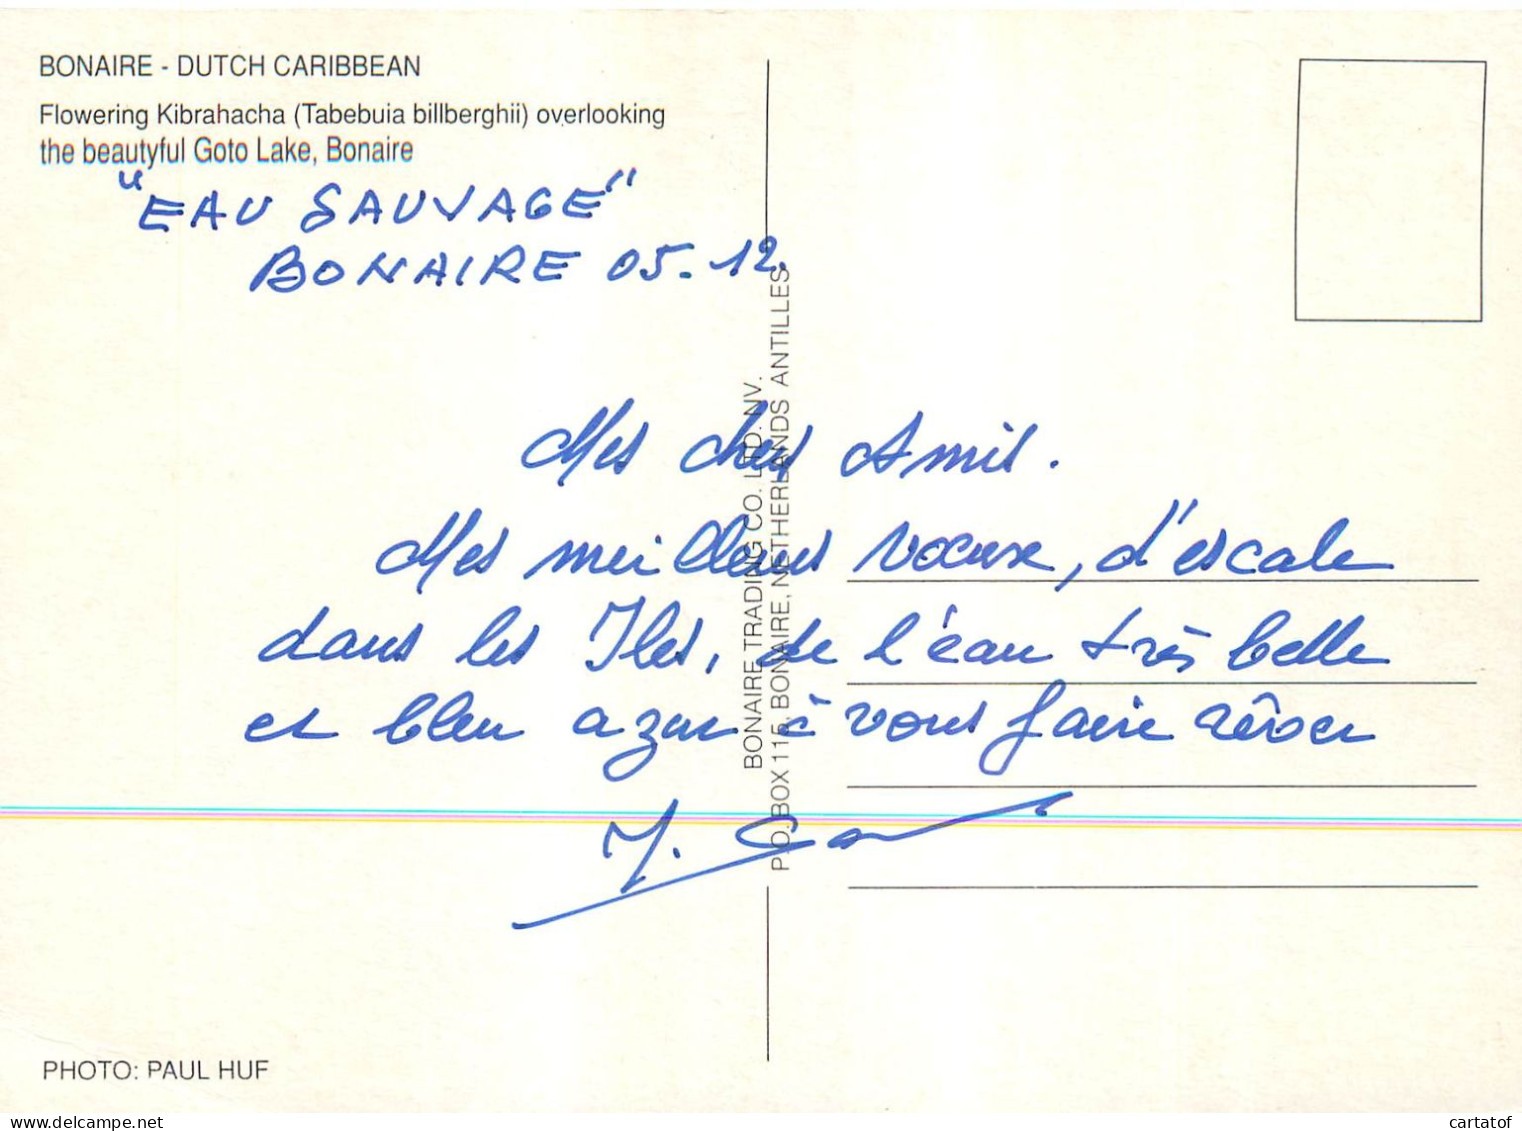 BONAIRE - DUTCH CARIBBEAN
Flowering Kibrahacha (Tabebuia billberghii) overlooking
the beautyful Goto Lake, Bonaire
"EAU SAUVAGE"
BONAIRE 05.12.
BONAIRE TRADING CO. LTD. NV.
P.O. BOX 115, BONAIRE, NETHERLANDS ANTILLES
Mes chers Amis.
Mes meilleurs voeux, d'escale
dans les Iles, de l'éau très belle
et bleu azur à vous faire rêver
PHOTO: PAUL HUF
cartatof